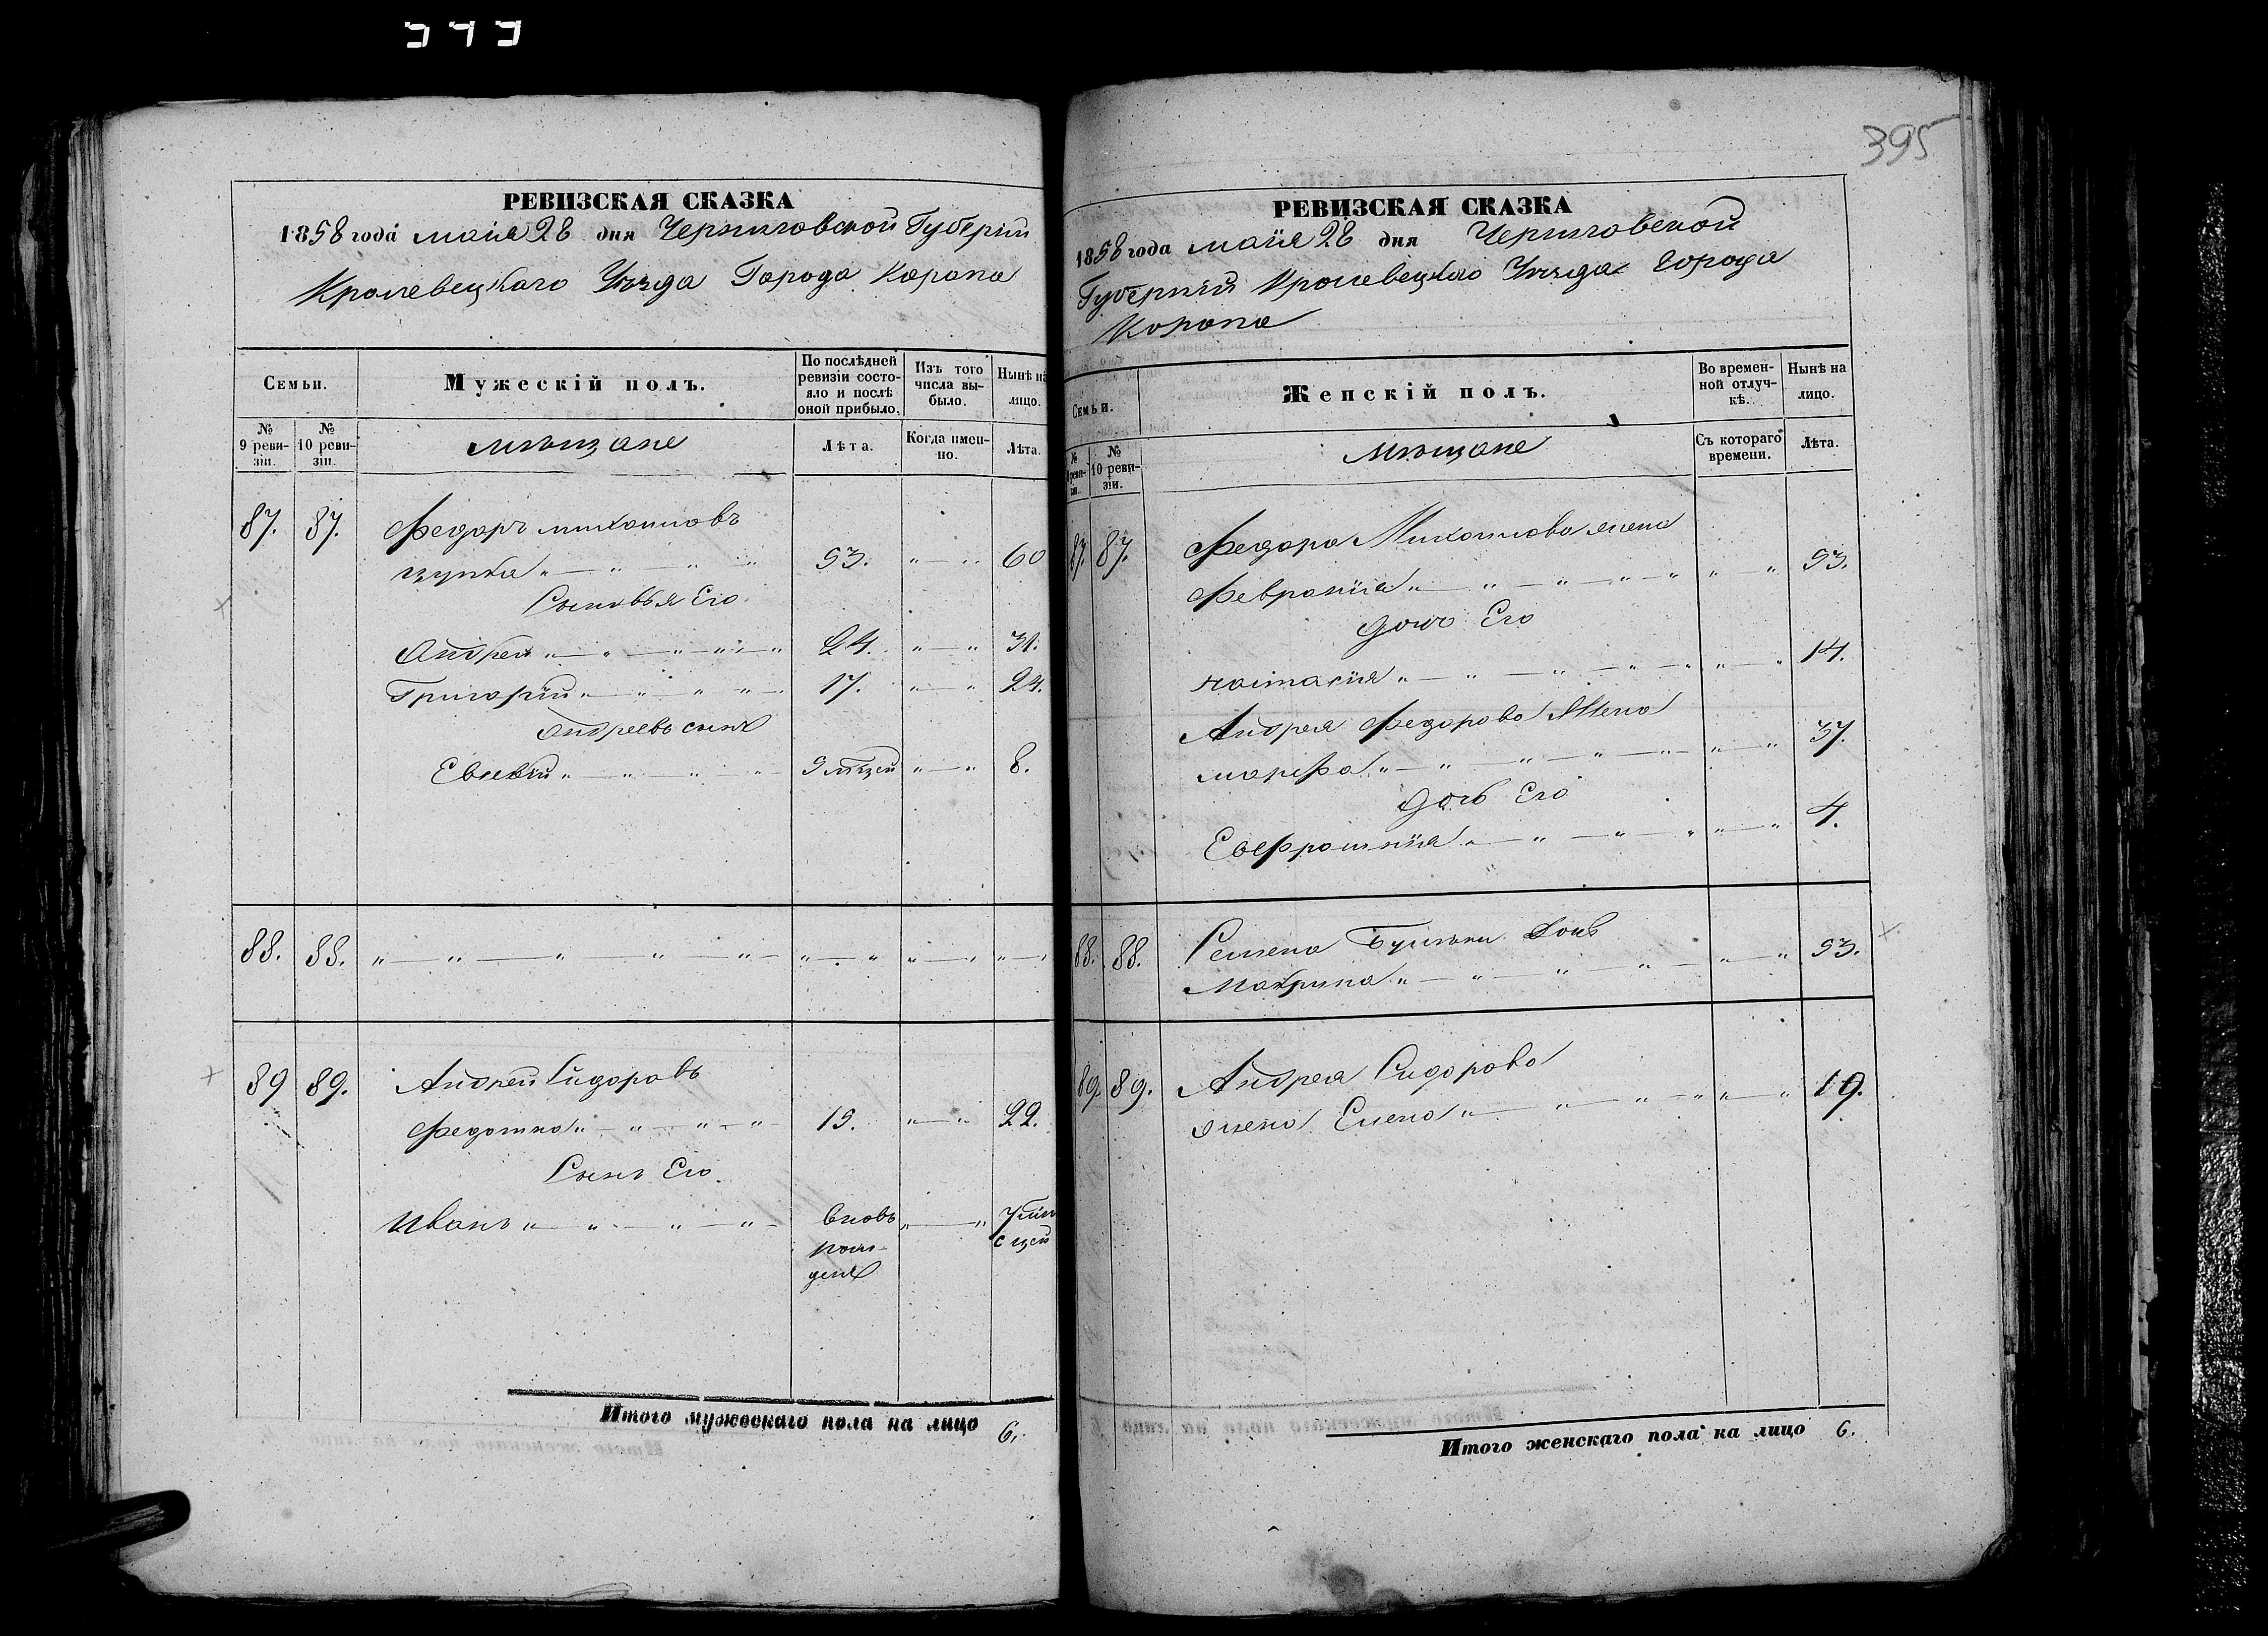 395
РЕВИЗСКАЯ СКАЗКА
1858 года маія 28 дня Черниговской Губерніи
Кролевецкаго Уѣзда Города Коропа
Семьи.
Мужескій полъ.
По послѣдней ревизіи состояло и послѣ оной прибыло.
Изъ того числа выбыло.
Нынѣ на лицо.
№ 9 ревизіи.
№ 10 ревизіи.
мѣщане
Лѣта.
Когда именно.
Лѣта.
87. 87. Федоръ михаиловъ
53. 60
Сыновья Его
Андрей 24. 31.
Григорій 17. 24.
Андреевъ сынъ
8.
88. 88.
89 89. Андрей Сидоровъ
15. 22.
Сынъ Его
Иванъ вновь рожденъ
Итого мужескаго пола на лицо 6.
РЕВИЗСКАЯ СКАЗКА
1858 года маія 28 дня Черниговской
Губерніи Кролевецкаго Уѣзда города
Коропа
Семьи.
Женскій полъ.
Во временной отлучкѣ.
Нынѣ на лицо.
№ 9 ревизіи.
№ 10 ревизіи.
мѣщане
Съ котораго времени.
Лѣта.
87. 87. Федора Михаилова жена
Февронія 53.
дочь Его
настасия 14.
Андрея Федорова Жена
марфа 37.
дочь Его
Евфросинія 4.
88. 88. Семена дочь
Макрина 53.
89. 89. Андрея Сидорова
жена Елена 19.
Итого женскаго пола на лицо 6.